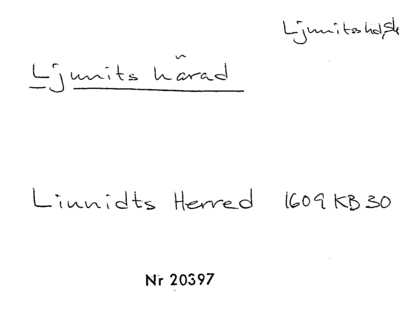 Ljunitshd, Sk
Ljunits härad
Liunidts Herred 1609 KB 30
Nr 20397